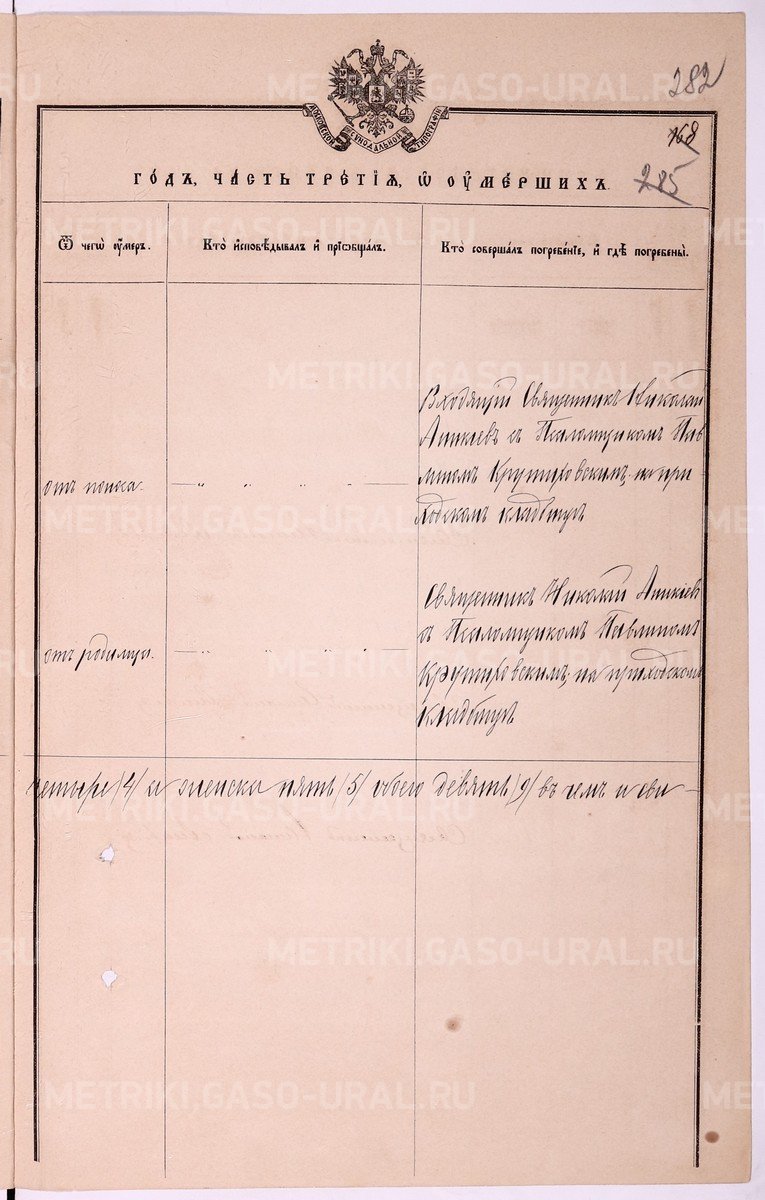 282
МОСКОВСКОЙ СѴНОДАЛЬНОЙ ТИПОГРАФІИ
168
285
ГО́ДЪ, ЧА́СТЬ ТРЕ́ТІЯ, Ѡ҆ ОУ҆МЕ́РШИХЪ.
Ѿ чегѡ̀ ᲂу҆́меръ.
Кто̀ и҆сповѣ́дывалъ и҆ прїѡбща́лъ.
Кто̀ соверша́лъ погребе́нїе, и҆ гдѣ̀ погребены̀.
Входящій Священникъ Николай
Аникіевъ съ Псаломщикомъ Пав-
линомъ Крутиховскимъ, на при-
ходскомъ кладбищѣ
отъ поноса.
Священникъ Николай Аникіев
съ Псаломщикомъ Павлиномъ
Крутиховскимъ, на приходскомъ
кладбищѣ
отъ родимца.
четыре /4/ а женска пять /5/ обоего девять /9/ въ чемъ и сви-
METRIKI.GASO-URAL.RU